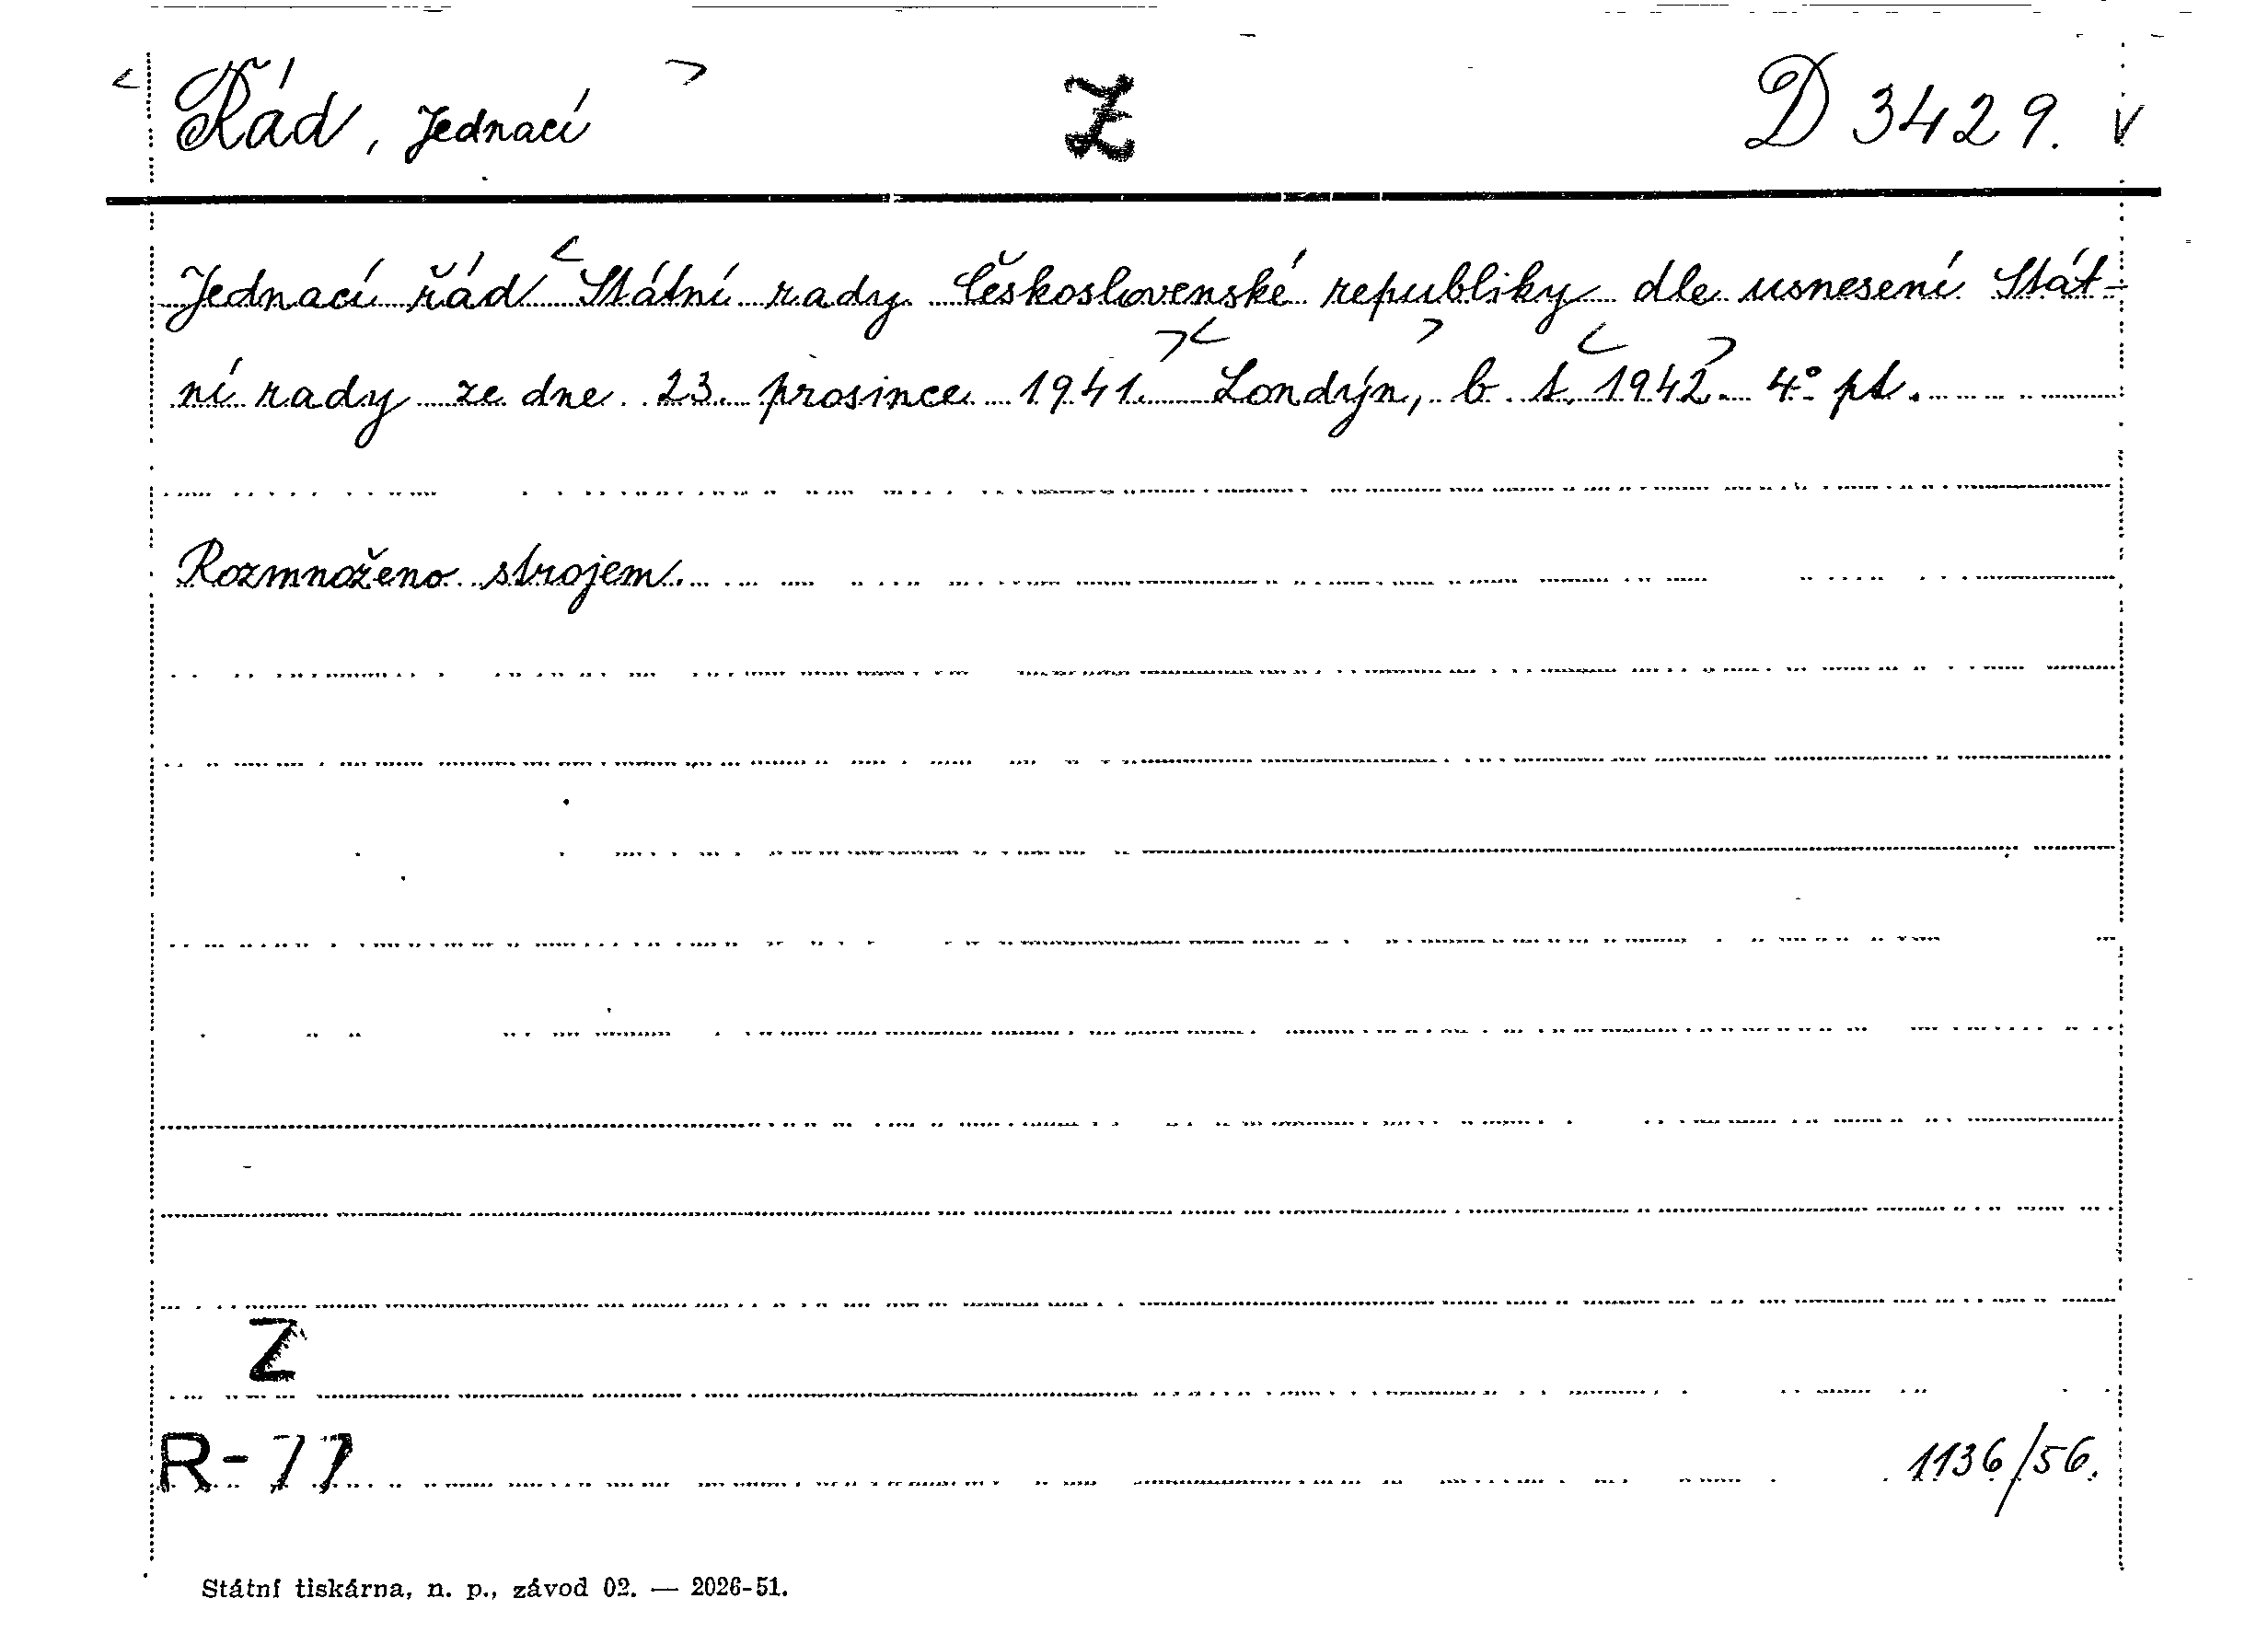 < Řád, Jednací > Z D 3429. v
Jednací řád < Státní rady Československé republiky dle usnesení Stát-
ní rady ze dne 23. prosince 1941. > < Londýn, > b. t. < 1942. > 4° pt.
Rozmnoženo strojem.
Z
R-77 1136/56.
Státní tiskárna, n. p., závod 02. — 2026-51.